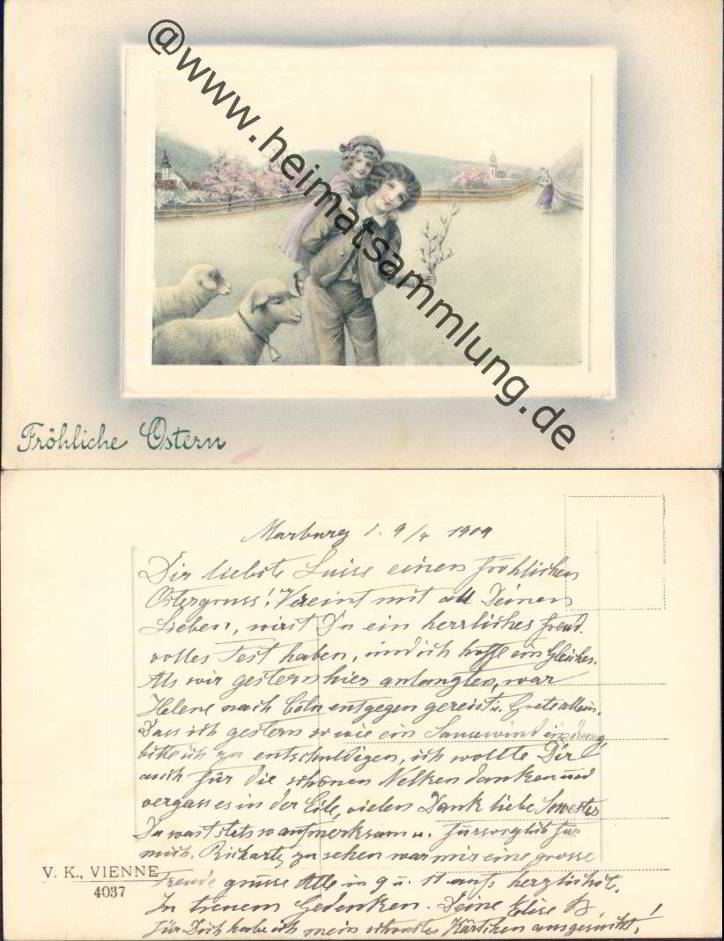 @www.heimatsammlung.de
Fröhliche Ostern
Marburg d. 9/4 1909
Dir liebste Luise einen fröhlichen
Ostergruss! Vereint mit all Deinen
Lieben, wirst Du ein herrliches freud-
volles Fest haben, und ich hoffe ein Gleiches.
Als wir gestern hier anlangten, war
Helene nach Cöln entgegen gereist u. Grete allein.
Dass ich gestern so wie ein Sausewind
bitte ich zu entschuldigen, ich wollte Dir
auch für die schönen Nelken danken und
vergass es in der Eile, vielen Dank liebe
Du warst stets so aufmerksam u. fürsorglich für
mich. zu sehen war mir eine grosse
Freude grüsse Alle in 9 u. 11 aufs herzlichste.
In treuem Gedenken. Deine Elise B.
für Dich habe ich mein schönstes Kärtchen ausgesucht!
V. K., VIENNE
4037